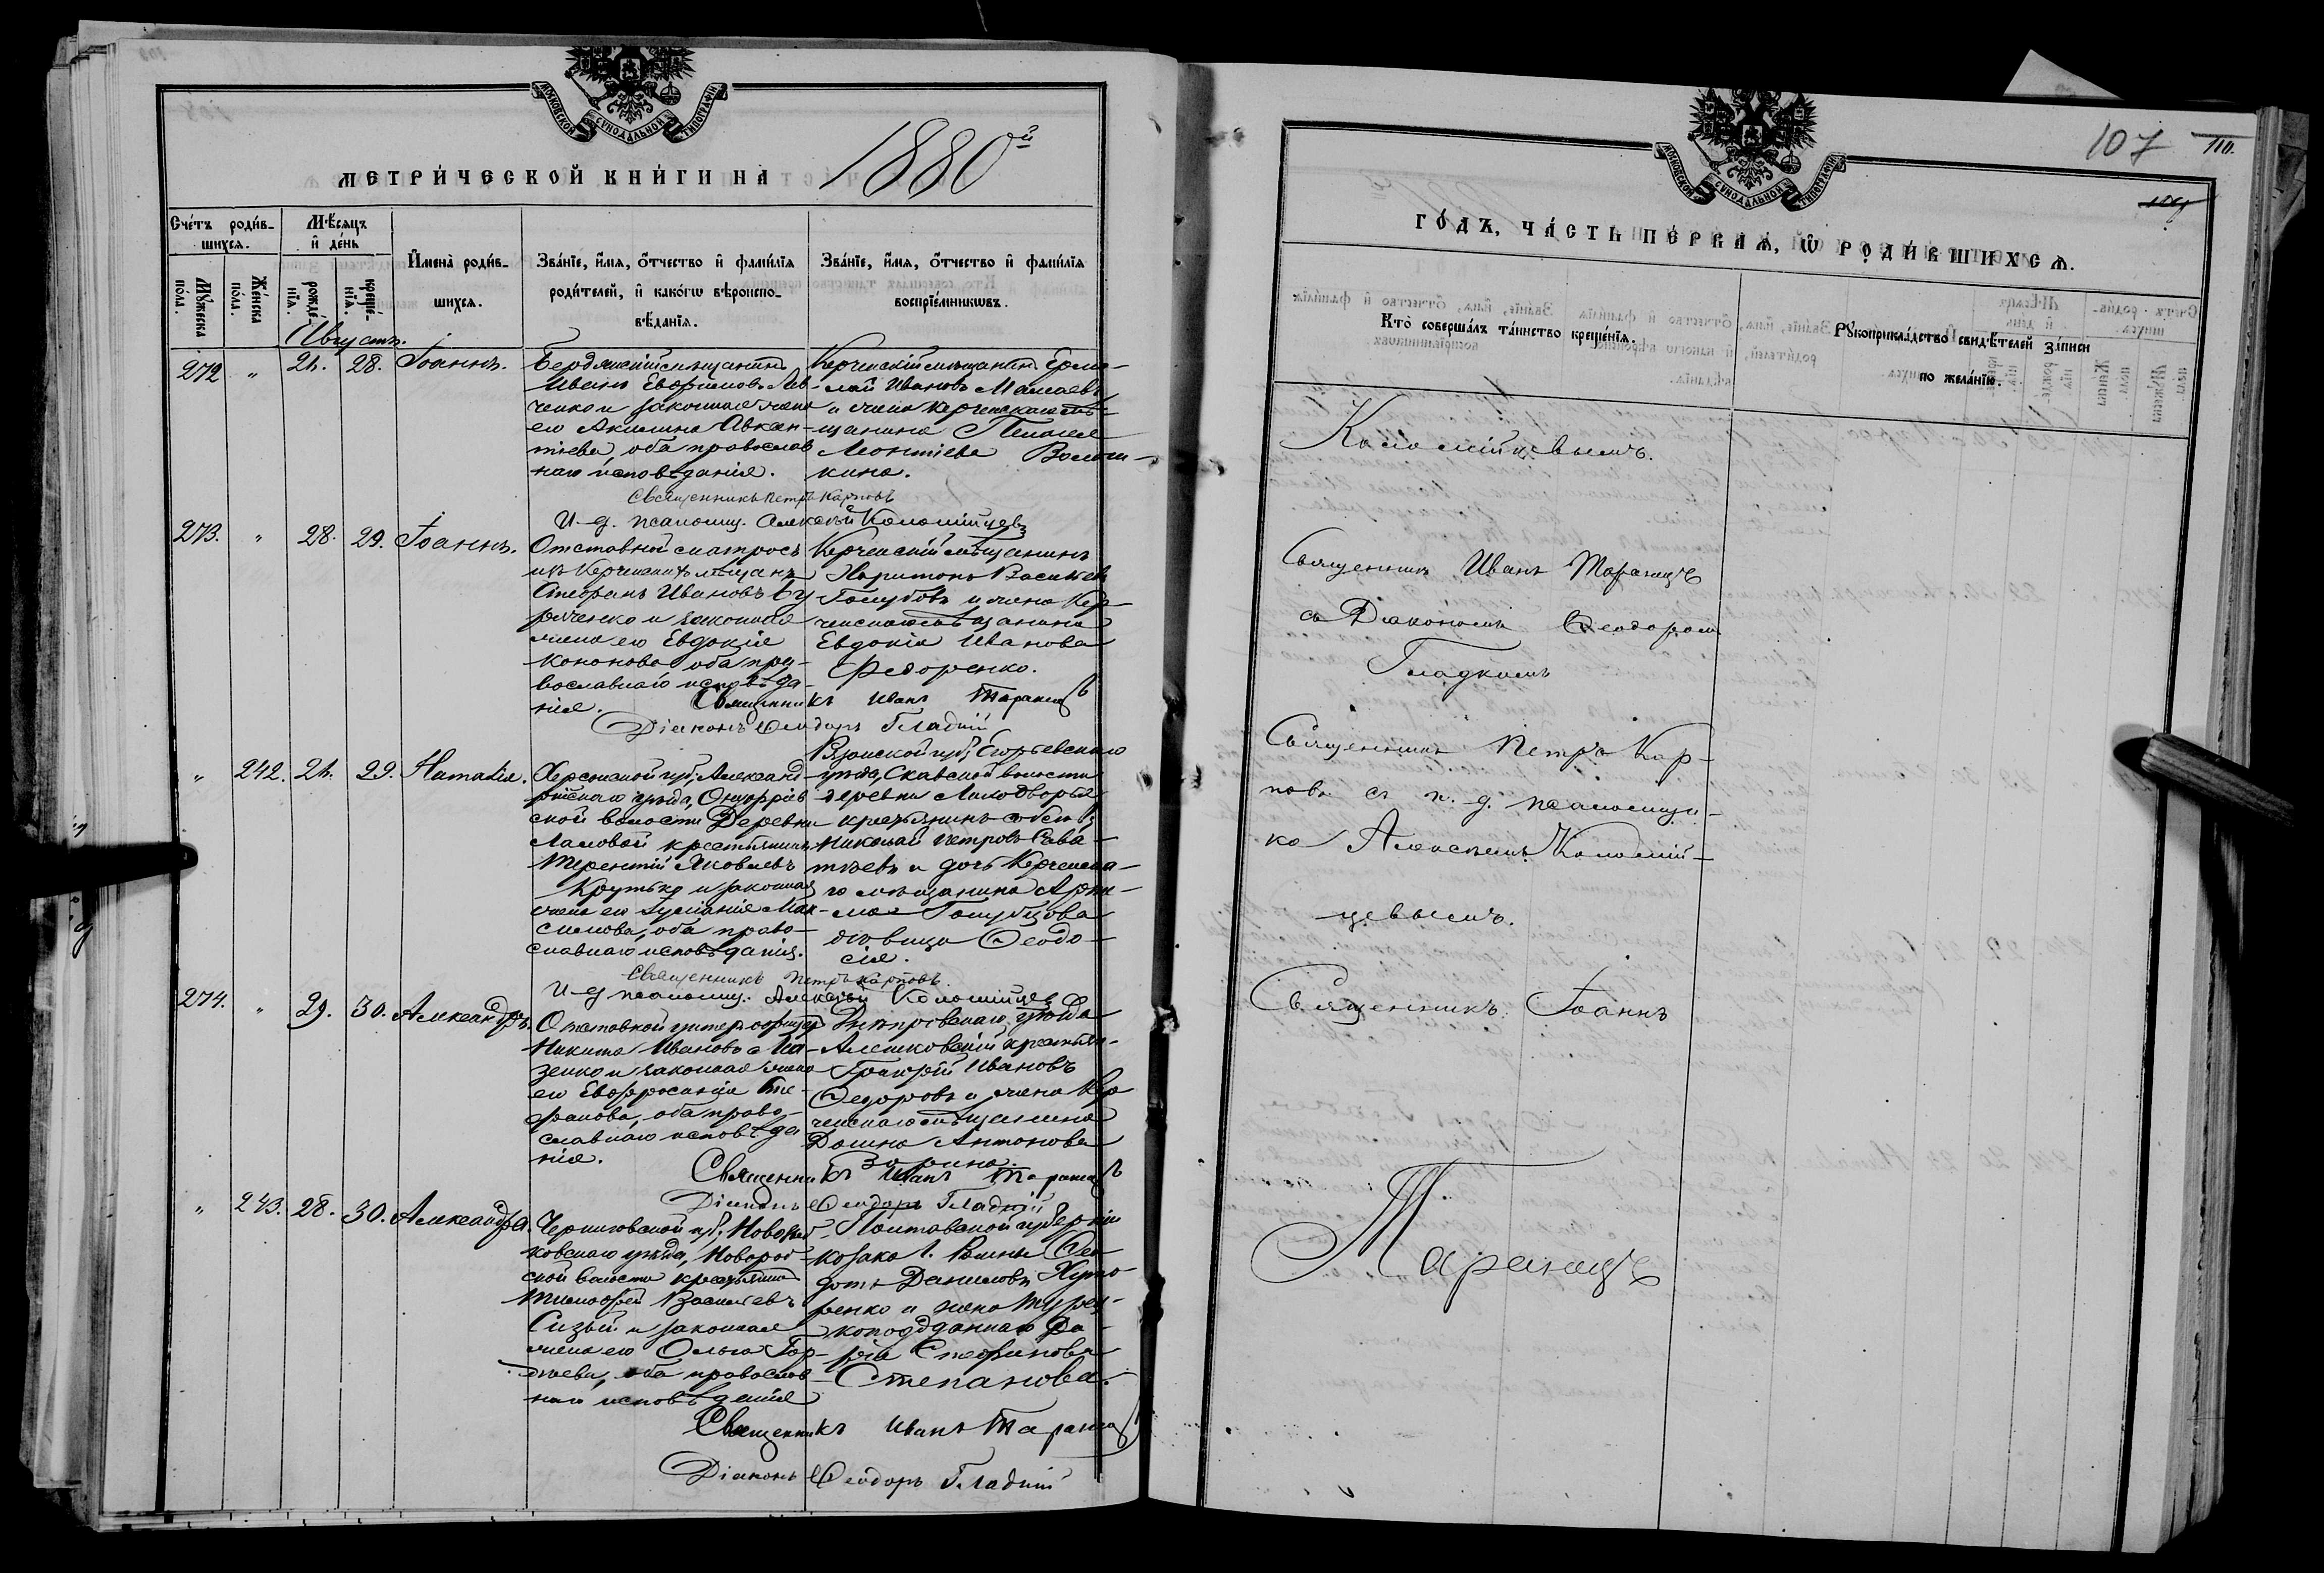 МОСКОВСКОЙ СУНОДАЛЬНОЙ ТИПОГРАФІИ
МЕТРИ́ЧЕСКОЙ КНИ́ГИ НА 1880й
Сче́тъ роди́в-
шихся.
Мꙋ́жеска по́ла.
Же́нска по́ла.
Мѣ́сяцъ и҆ де́нь
рожде́-нїѧ.
креще́-нїѧ.
И҆мена̀ роди́в-
шихсѧ.
Зва́нїе, и҆́мѧ, ѻ҆́тчество и҆ фами́лїѧ
роди́телей, и҆ како́гѡ вѣроиспо-
вѣ́данїѧ.
Зва́нїе, и҆́мѧ, ѻ҆́тчество и҆ фами́лїѧ
воспрїе́мникѡвъ.
Августъ.
272 " 24. 28. Іоаннъ.
Бердянскій мѣщанинъ
Иванъ Евфимовъ Лев-
ченко и законная жена
его Акилина Авксен-
тіева, оба православ
наго исповѣданія.
Керченскій мѣщанинъ Ермо-
лай Ивановъ Мамаевъ
и жена керченскаго мѣ-
щанина Пелагея
Леонтіева Волош-
кина.
Священникъ Петръ Карповъ
И-д. псаломщ. Алексѣй Коломійцевъ
273. " 28. 29. Іоаннъ.
Отставной матросъ
изъ Керченскихъ мѣщанъ
Стефанъ Ивановъ Бу
рлченко и законная
жена его Евдокія
Кононова оба пра-
вославнаго исповѣда-
нія.
Керченскій мѣщанинъ
Харитонъ Васильевъ
Голубовъ и жена Кер-
ченскаго мѣщанина
Евдокія Иванова
Федоренко.
Священникъ Иванъ Таранецъ
Діаконъ Ѳеодоръ Гладкій
" 242. 24. 29. Наталія.
Херсонской губ., Александ-
рійскаго уѣзда, Онуфріев
ской волости Деревни
Ламовой крестьянинъ
Терентій Яковлевъ
Крутько и законная
жена его Гуліанія Мак-
симова, оба право-
славнаго исповѣданія.
Рязанской губ., Егорьевскаго
уѣзда, Скавской волости
деревни Малодворья
крестьянинъ собств.
Николай Петровъ Сава-
тѣевъ и дочь Керченска-
го мѣщанина Арте-
ма Голубцова
дѣвица Ѳеодо-
сія.
Священникъ Петръ Карповъ.
И-д псаломщ. Алексѣй Коломійцевъ
274. " 29. 30. Александръ.
Отставной унтерофицеръ
Никита Ивановъ Ма-
зенко и законная жена
его Евфросинія Сте-
фанова, оба право-
славнаго исповѣда
нія.
Днѣпровскаго уѣзда
Алешковскій крестьян-
Григорій Ивановъ
Ѳедоровъ и жена Кер
ченскаго мѣщанина
Домна Антонова
Зорина.
Священникъ Иванъ Таранецъ
Діаконъ Ѳеодоръ Гладкій
" 243. 28. 30. Александра.
Черниговской губ., Новозыб
ковскаго уѣзда, Новороп
ской волости крестьянинъ
Тимофей Васильевъ
Сизый и законная
жена его Ольга Гор-
дѣева, оба православ
наго исповѣданія
Полтавской губерніи
козакъ г. Ромны Ѳео
дотъ Даниловъ Хуто-
ренко и жена турец-
коподданнаго Да-
рія Стефанова
Степанова.
Священникъ Иванъ Таранецъ
Діаконъ Ѳеодоръ Гладкій
107 110.
МОСКОВСКОЙ СУНОДАЛЬНОЙ ТИПОГРАФІИ
ГО́ДЪ, ЧА́СТЬ ПЕ́РВАѦ, Ѡ҆ РОДИ́ВШИХСѦ.
Кто̀ соверша́лъ та́инство креще́нїѧ.
Рꙋкоприкла́дство свидѣ́телей за́писи
по жела́нїю.
Коломійцевымъ.
Священникъ Иванъ Таранецъ
съ Діакономъ Ѳеодоромъ
Гладкимъ
Священникъ Петръ Кар-
повъ съ и. д. псаломщи-
ка Алексѣемъ Коломій-
цевымъ.
Священникъ Іоаннъ
Таранецъ